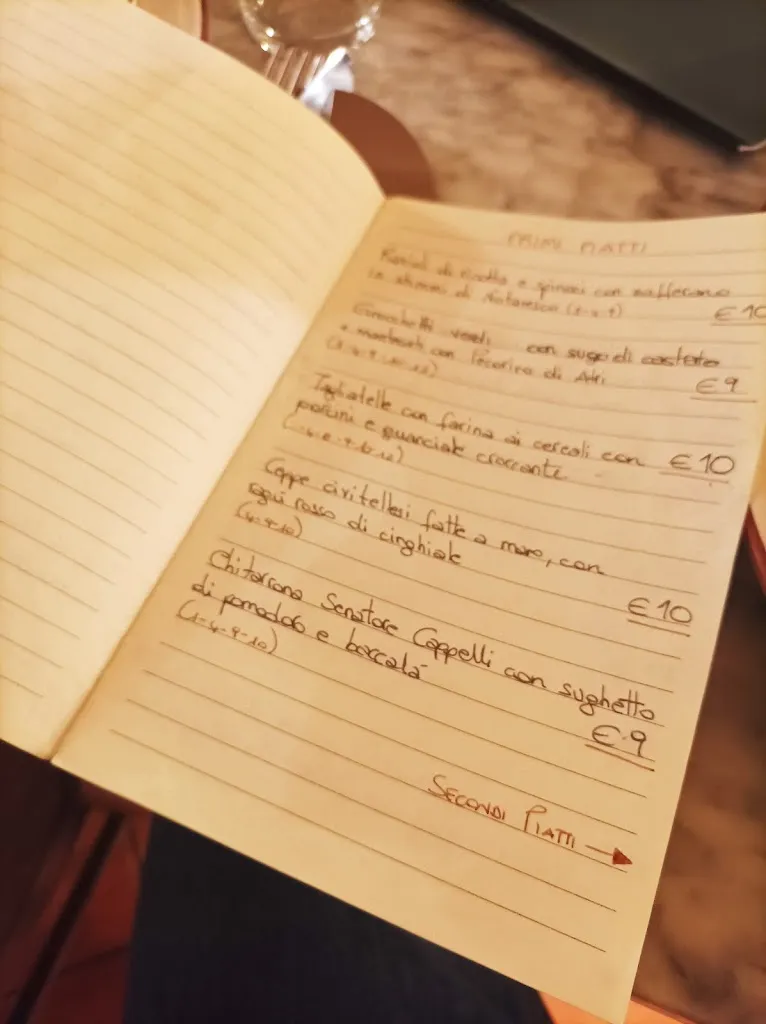 PRIMI PIATTI
Ravioli di ricotta e spinaci con zafferano
in stimmi di Notaresco
€ 10
verdi con sugo di castrato
e mantecati con Pecorino di Atri
€ 9
Tagliatelle con farina ai cereali con
€ 10
porcini e guanciale croccante
Ceppe civitellesi fatte a mano, con
€ 10
ragù rosso di cinghiale
(4-9-10)
Chitarrona Senatore Cappelli con sughetto
€ 9
di pomodoro e baccalà
(1-4-9-10)
SECONDI PIATTI →